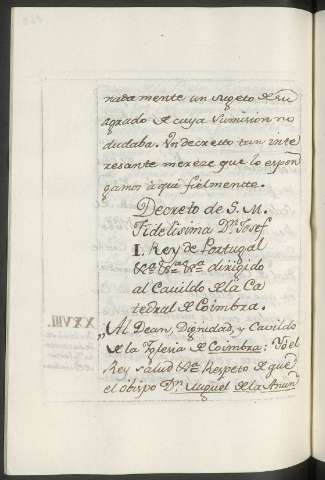 nadamente un sugeto de su
agrado de cuya sumision no
dudaba. Un decretto tan inte
resante mereze que lo espon
gamos aqui fielmente.
Decreto de S. M.
Fidelisima Dn. Josef
I. Rey de Portugal
&a. &a. &a. dirigido
al Cavildo de la Ca
tedral de Coimbra.
„Al Dean, Dignidad, y Cavildo
de la Iglesia de Coimbra: Yo el
Rey salud &a. Respeto de que
el obispo Dn. Miguel de la Anun